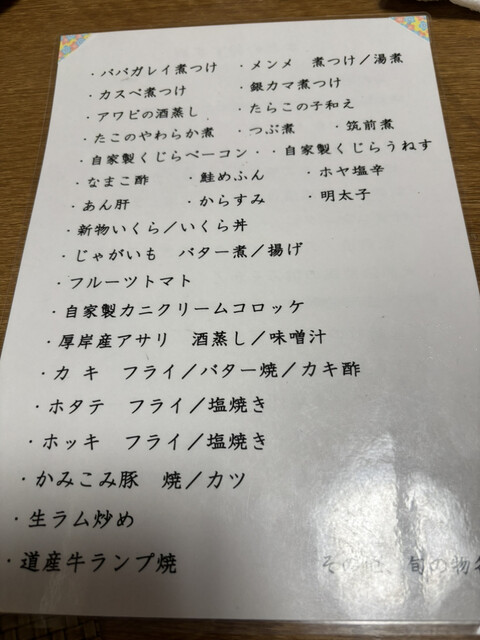 ・ババガレイ煮つけ ・メンメ 煮つけ／湯煮
・カスベ煮つけ ・銀カマ煮つけ
・アワビの酒蒸し ・たらこの子和え
・たこのやわらか煮 ・つぶ煮 ・筑前煮
・自家製くじらベーコン・・自家製くじらうねす
・なまこ酢 ・鮭めふん ・ホヤ塩辛
・あん肝 ・からすみ ・明太子
・新物いくら／いくら丼
・じゃがいも バター煮／揚げ
・フルーツトマト
・自家製カニクリームコロッケ
・厚岸産アサリ 酒蒸し／味噌汁
・カキ フライ／バター焼／カキ酢
・ホタテ フライ／塩焼き
・ホッキ フライ／塩焼き
・かみこみ豚 焼／カツ
・生ラム炒め
・道産牛ランプ焼
その他 旬の物